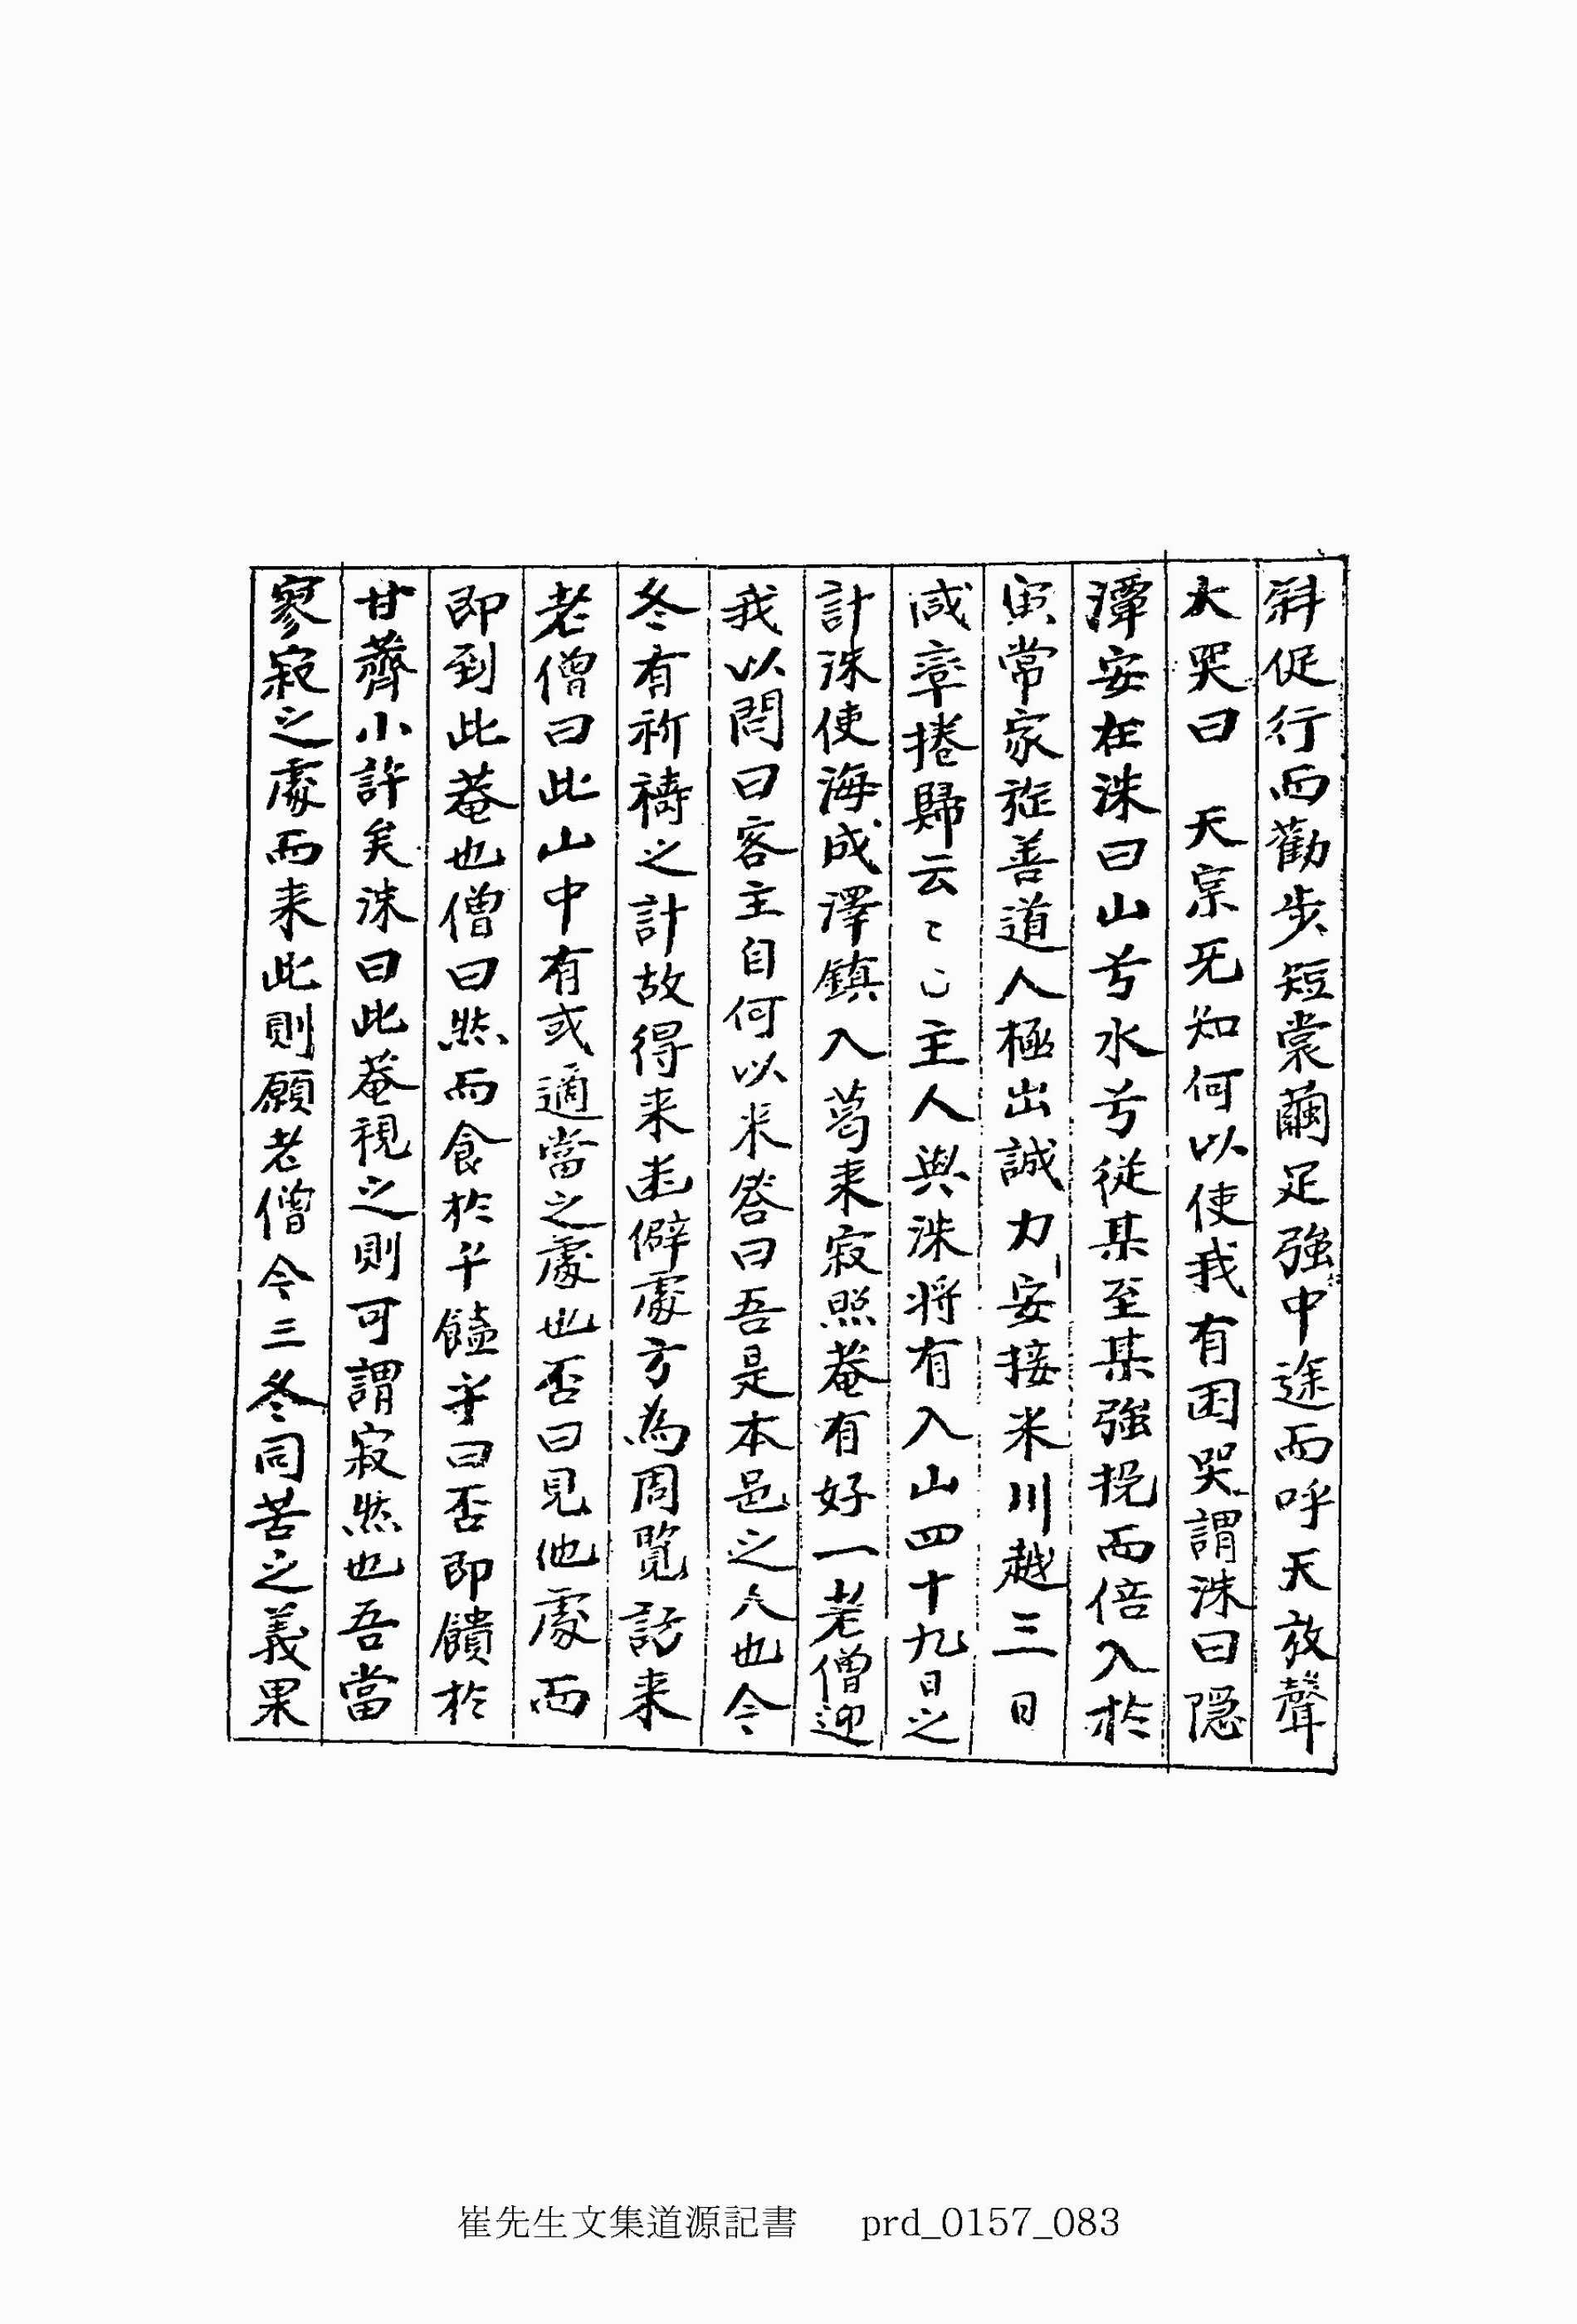 斜促行而勸步短裳繭足強中途而呼天放聲
大哭曰 天宗旡知何以使我有困哭謂洙曰隱
潭安在洙曰山兮水兮從某至某強挽而倍入於
寅常家旋善道人極出誠力安接米川越三日
咸章捲歸云〻〻主人與洙將有入山四十九日之
計洙使海成澤鎭入葛来寂照菴有好一老僧迎
我以問曰客主自何以来答曰吾是本邑之人也今
冬有祈禱之計故得来幽僻處方為周覽訪来
老僧曰此山中有或適當之處也否曰見他處而
即到此菴也僧曰然而食於午饁乎曰否即饋於
甘薺小許矣洙曰此菴視之則可謂寂然也吾當
寥寂之處而来此則願老僧今三冬同苦之義果
崔先生文集道源記書 prd_0157_083